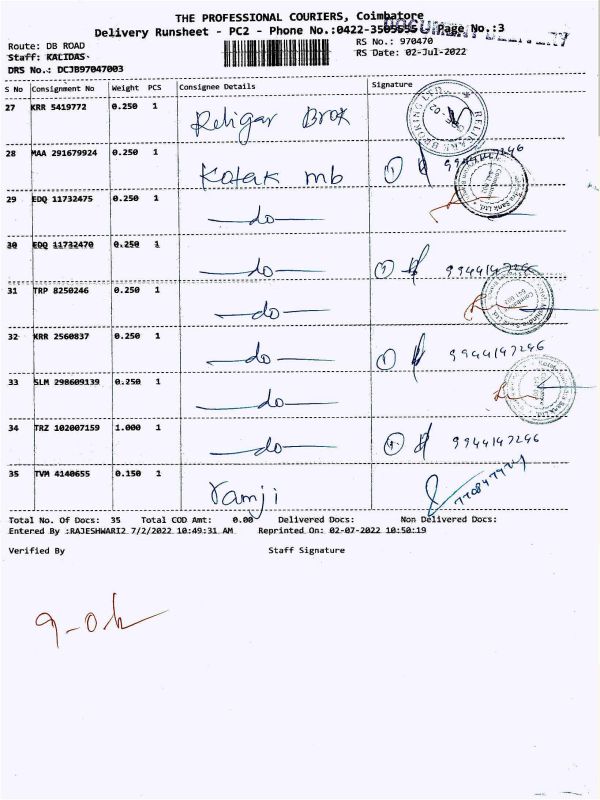 THE PROFESSIONAL COURIERS, Coimbatore
Delivery Runsheet - PC2 - Phone No.:0422-3505555 Page No.:3
DOCUMENT DELIVERY
Route: DB ROAD RS No.: 970470
Staff: KALIDAS- RS Date: 02-Jul-2022
DRS No.: DCJB97047003
S No Consignment No Weight PCS Consignee Details Signature
27 KRR 5419772 0.250 1 Religar Brok
28 MAA 291679924 0.250 1 Kotak mb 1 9944147246
29 EDQ 11732475 0.250 1 —do—
30 EDQ 11732470 0.250 1 —do— 1 9944147246
31 TRP 8250246 0.250 1 —do—
32 KRR 2560837 0.250 1 —do— 1 9944147246
33 SLM 298609139 0.250 1 —do—
34 TRZ 102007159 1.000 1 —do— 9944147246
35 TVM 4140655 0.150 1 ramji
Total No. Of Docs: 35 Total COD Amt: 0.00 Delivered Docs: Non Delivered Docs:
Entered By :RAJESHWARI2 7/2/2022 10:49:31 AM Reprinted On: 02-07-2022 10:50:19
Verified By Staff Signature